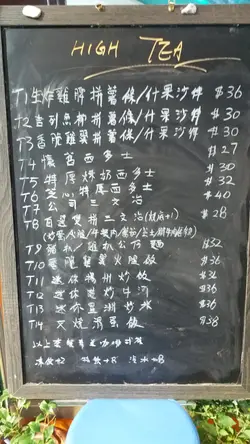 HIGH TEA
T1 生炸雞脾拼薯條/什果沙律 $36
T2 吉列魚柳拼薯條/什果沙律 $30
T3 香脆雞翼拼薯條/什果沙律 $30
T4 懷舊西多士 $27
T5 特厚炼奶西多士 $30
T6 芝心特厚西多士 $32
T7 公司三文治 $40
T8 自選雙拼三文治(烘底+1) $28
T9 豬扒/雞扒公仔麵 $32
T10 香脆雞翼火腿飯 $36
T11 迷你揚州炒飯 $36
T12 迷你干炒牛河 $36
T13 迷你星洲炒米 $36
T14 叉燒滑蛋飯 $38
以上套餐
凍飲+2 特飲+8 汽水+8